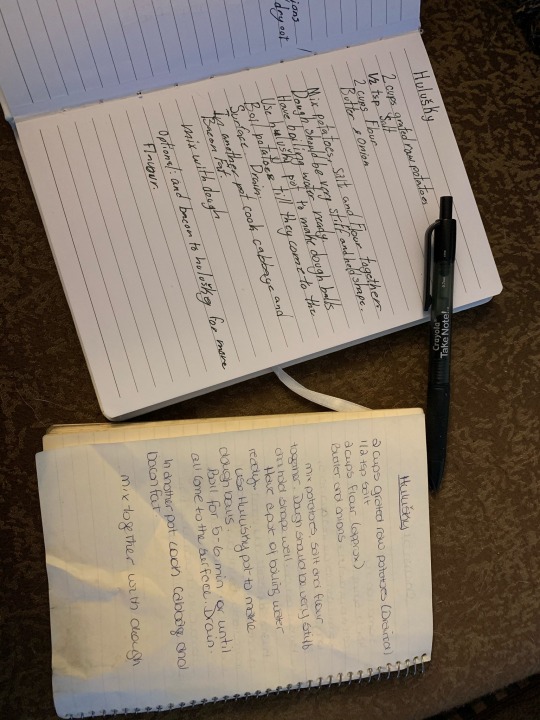 ions
dry out
Hulušky
2 cups grated raw potatoes
1/2 tsp Salt
2 cups Flour
Butter & Onion
Mix potatoes, Silt and Flour together.
Dough should be very stiff and hold shape.
Have boiling water ready
Use hulušky pot to make dough balls
Boil potatoes till they come to the
Surface. Drain.
In another pot cook cabbage and
Bacon Fat.
Mix with dough
Optional: and bacon to hulušky for more
Flavour.
Crayola Take Note!
Hulušky
2 cups grated raw potatoes (Drained)
1/2 tsp salt
2 cups flour (approx)
Butter and onions
mix potatoes, salt and flour
together. Dough should be very stiff
and hold shape well
Have a pot of boiling water
ready.
use Hulušky pot to make
dough balls.
Boil for 5-6 min or until
all come to the surface. Drain.
In another pot cook cabbage and
bacon fat
mix together with dough